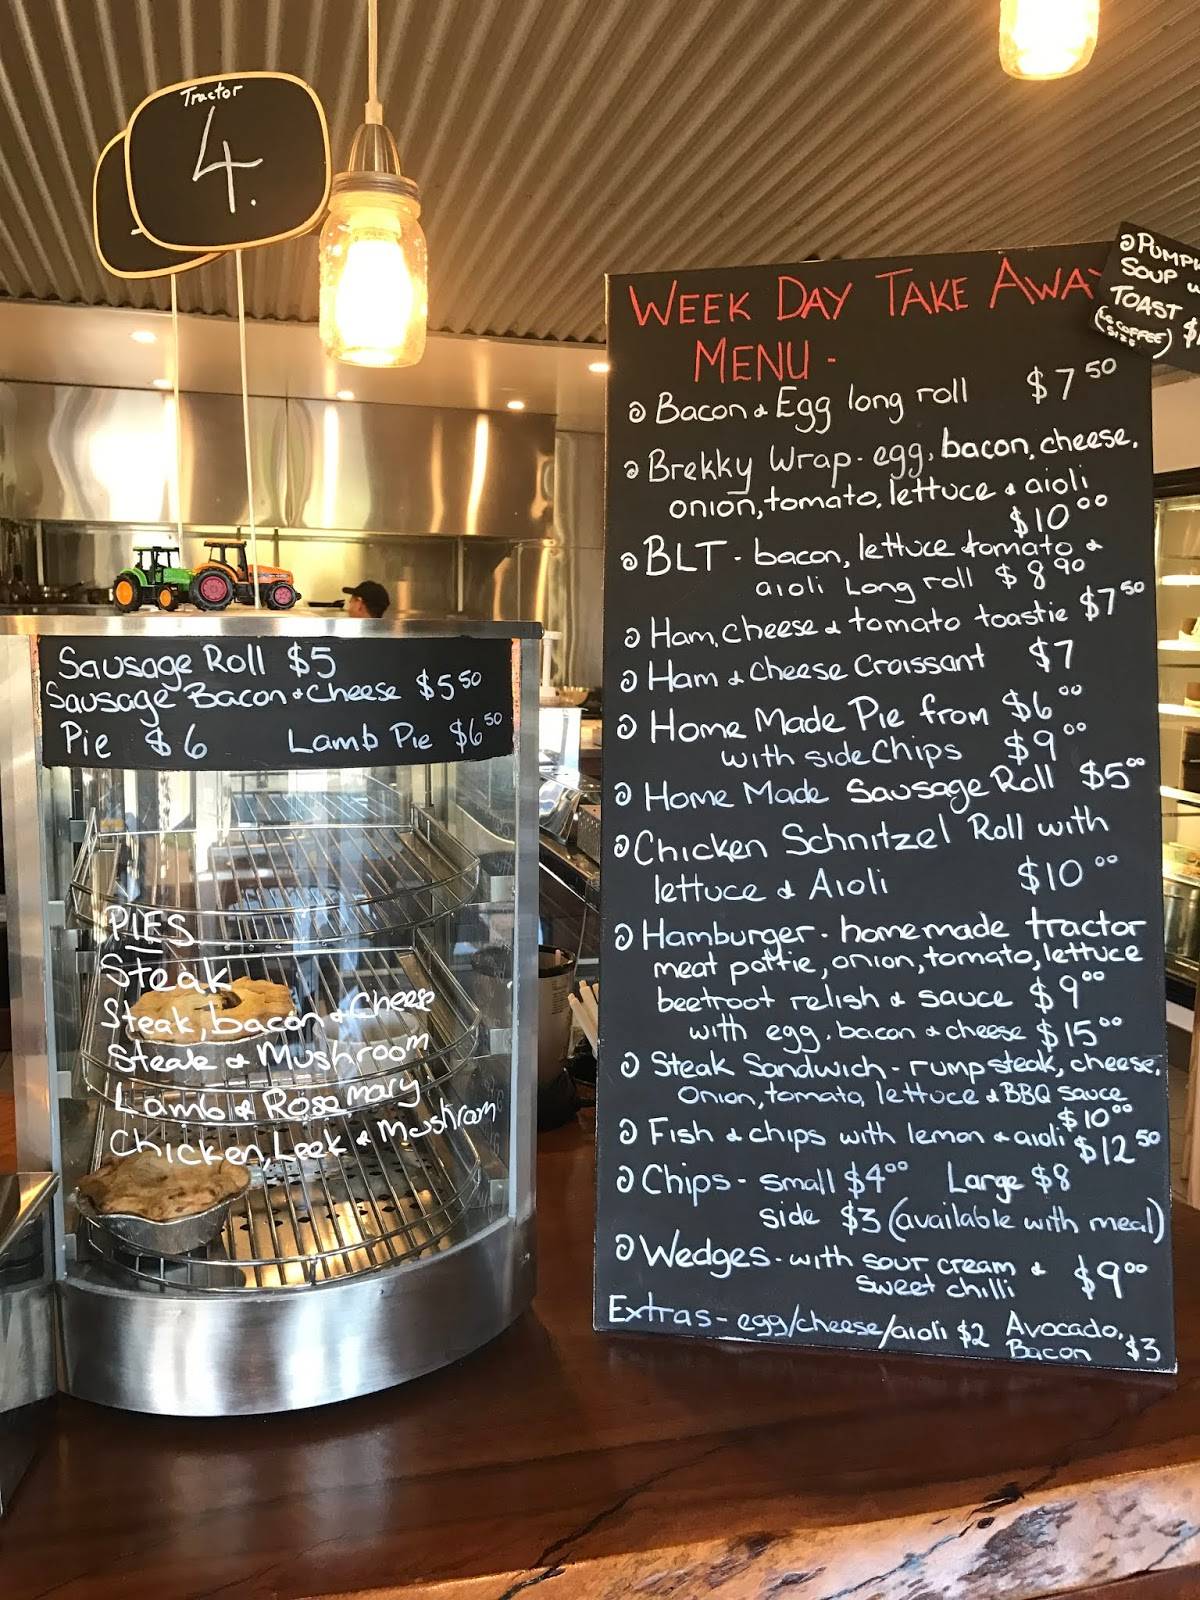 Tractor
4.
Sausage Roll $5
Sausage Bacon & Cheese $5 50
Pie $6 Lamb Pie $6 50
PIES
Steak
Steak, bacon & Cheese
Steak & Mushroom
Lamb & Rosemary
Chicken, Leek & Mushroom
WEEK DAY TAKE AWA
MENU -
Bacon & Egg long roll $7 50
Brekky Wrap - egg, bacon, cheese,
onion, tomato, lettuce & aioli
$10 00
BLT - bacon, lettuce tomato &
aioli Long roll $8 90
Ham, cheese & tomato toastie $7 50
Ham & Cheese Croissant $7
Home Made Pie from $6 00
with side Chips $9 00
Home Made Sausage Roll $5 00
Chicken Schnitzel Roll with
lettuce & Aioli $10 00
Hamburger - homemade tractor
meat pattie, onion, tomato, lettuce
beetroot relish & sauce $9 00
with egg, bacon & cheese $15 00
Steak Sandwich - rump steak, cheese,
onion, tomato, lettuce & BBQ sauce
$10 00
Fish & chips with lemon & aioli $12 50
Chips - small $4 00 Large $8
side $3 (available with meal)
Wedges - with sour cream &
sweet chilli $9 00
Extras - egg/cheese/aioli $2 Avocado,
Bacon $3
SOUP
TOAST
COFFEE
SIZE